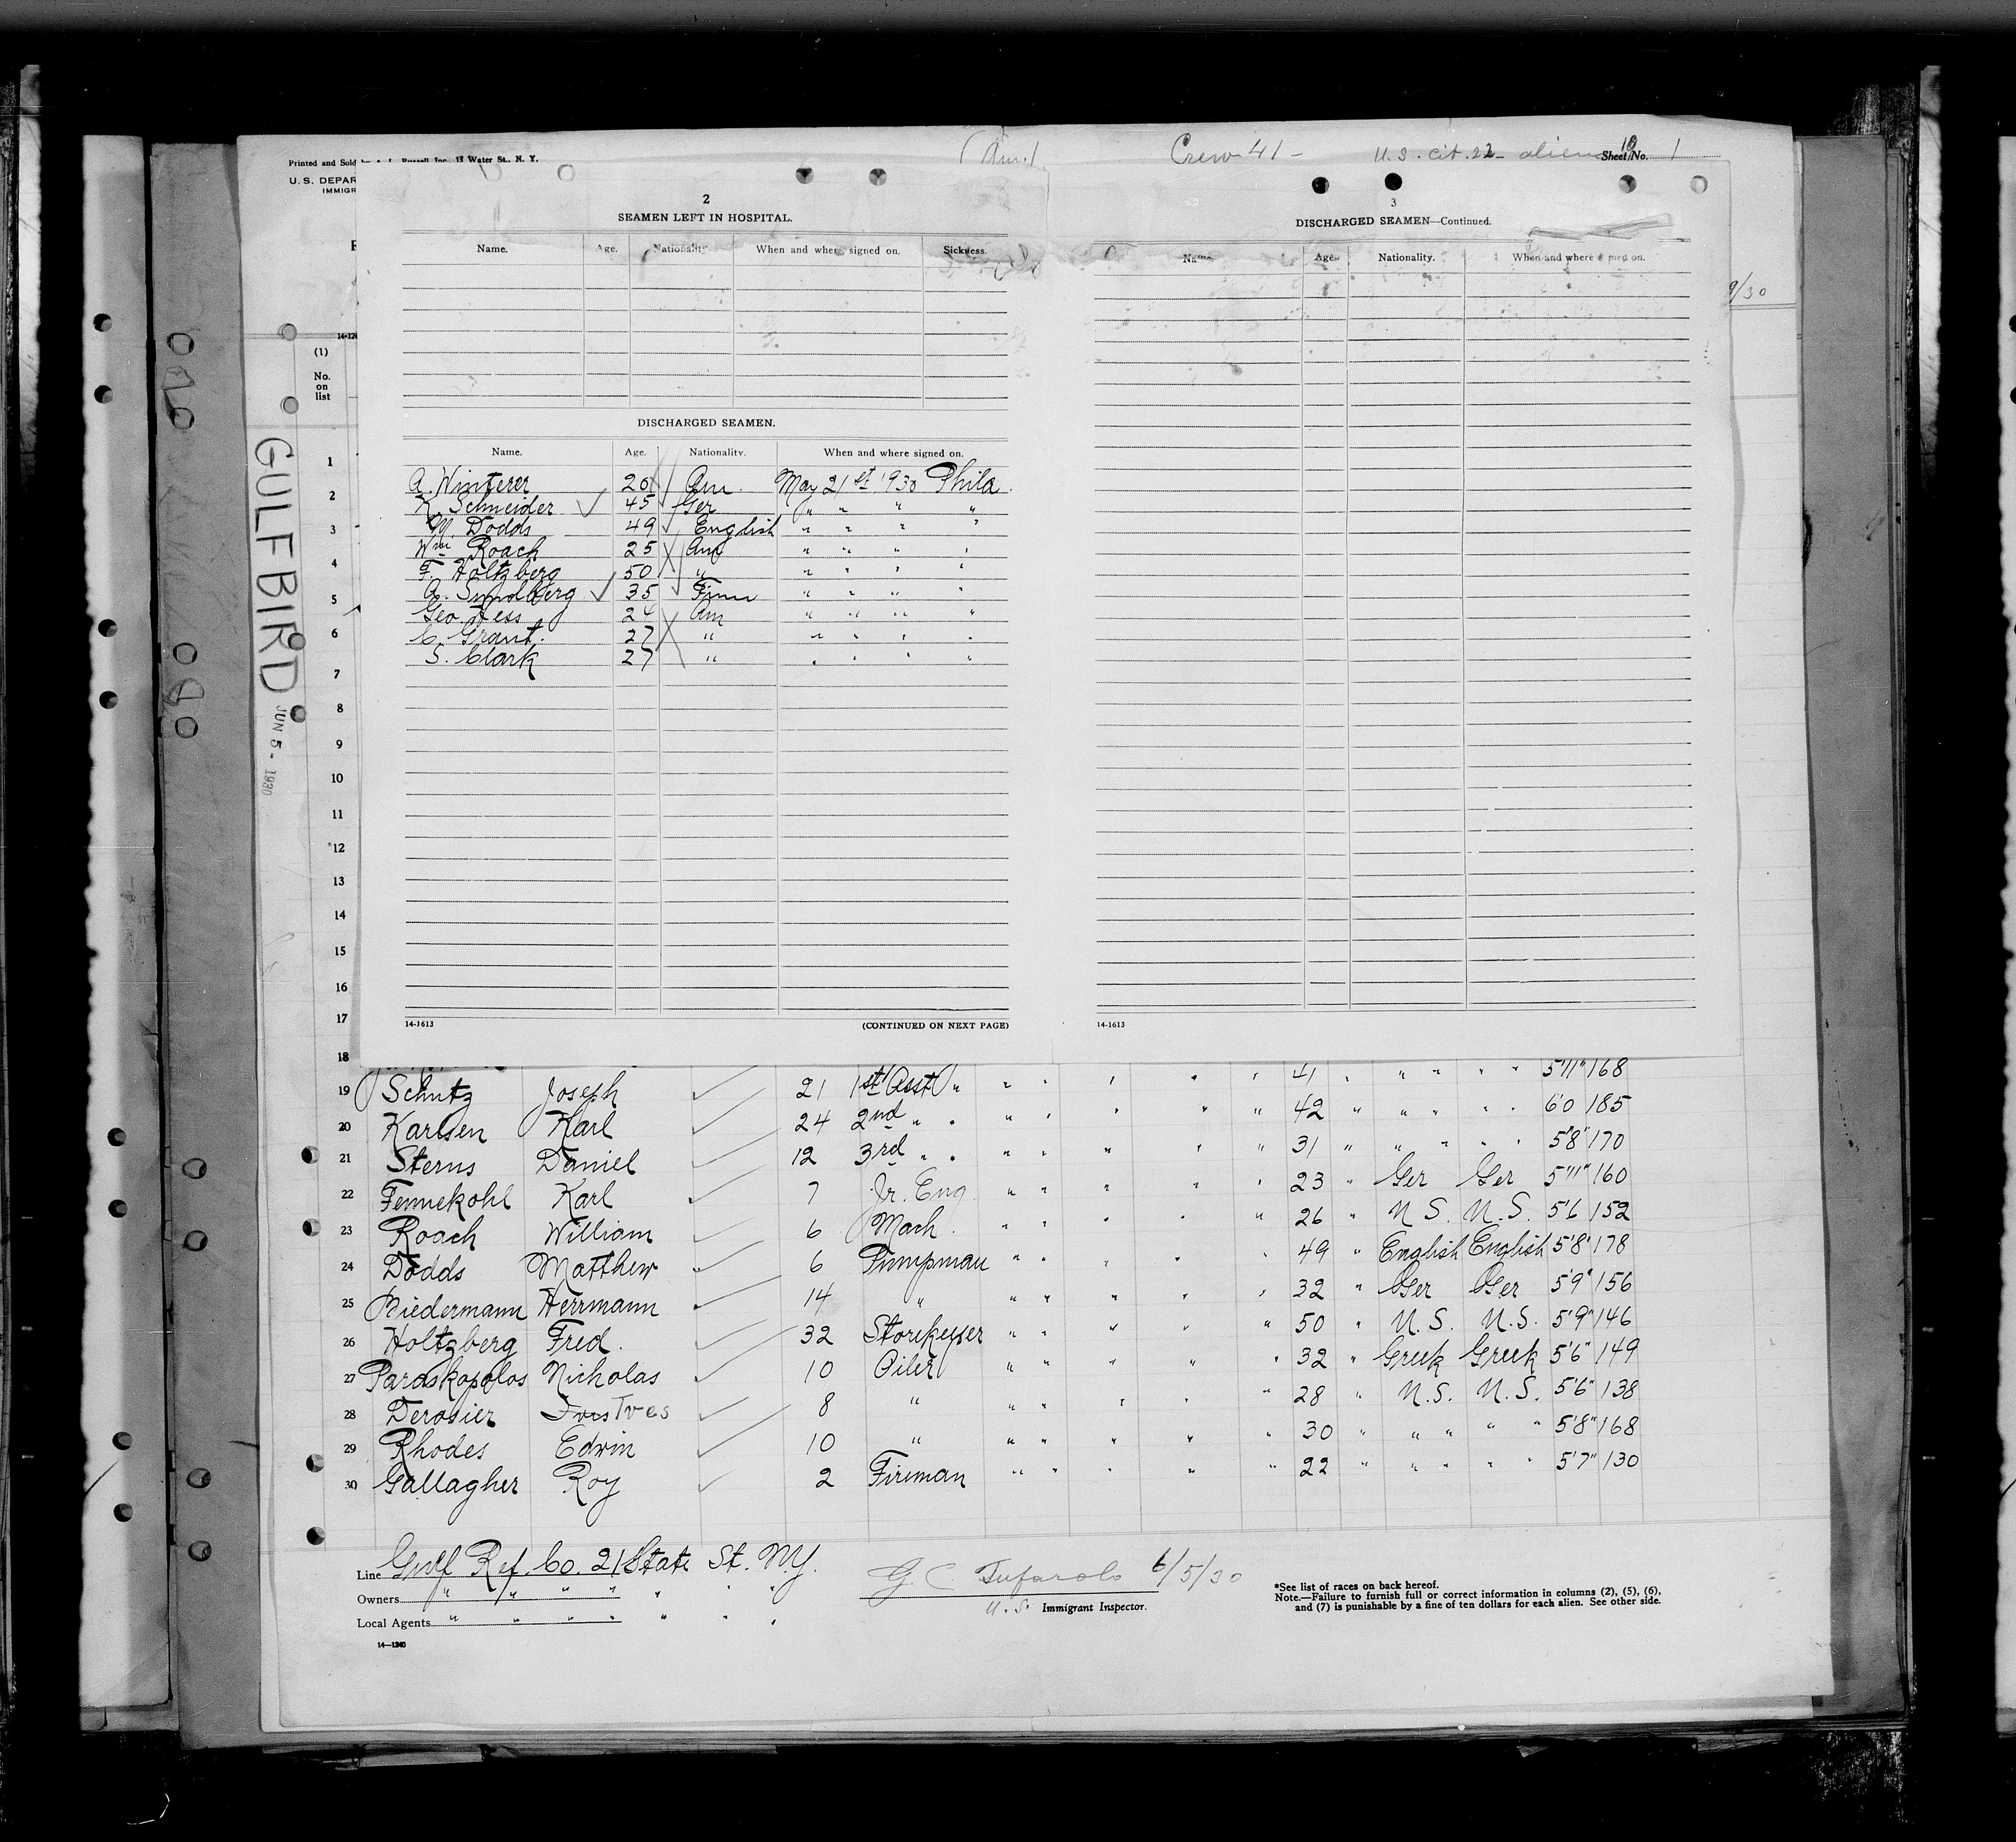 Printed and Sold 13 Water St., N. Y.
Crew 41 - U. S. cit. 22 - alien Sheet No. 1
U. S. DEPAR
IMMIGR
2
SEAMEN LEFT IN HOSPITAL.
Name. Age. Nationality. When and where signed on. Sickness.
DISCHARGED SEAMEN.
Name. Age. Nationality. When and where signed on.
A. Winterer 20 Am. May 21st 1930 Phila.
K. Schneider 45 Ger " " " "
M. Dodds 49 English " " " "
Wm Roach 25 Am " " " "
F. Holtzberg 50 " " " " "
A. Sundberg 35 Finn " " " "
Geo Hess 24 Am " " " "
C. Grant. 27 " " " " "
S. Clark 27 " " " " "
14-1613 (CONTINUED ON NEXT PAGE)
3
DISCHARGED SEAMEN—Continued.
Name. Age. Nationality. When and where signed on.
14-1613
9/30
(1)
No.
on
list
GULFBIRD
JUN 5 - 1930
1
2
3
4
5
6
7
8
9
10
11
12
13
14
15
16
17
18
19 Schutz Joseph 21 1st Asst " " " " " " 41 " " " " " 5'11" 168
20 Karlsen Karl 24 2nd " " " " " " " 42 " " " " " 6'0 185
21 Sterns Daniel 12 3rd " " " " " " " 31 " " " " " 5'8" 170
22 Fennekohl Karl 7 Jr. Eng. " " " " " 23 " Ger Ger 5'11" 160
23 Roach William 6 Mach. " " " " " 26 " U.S. U.S. 5'6 152
24 Dodds Matthew 6 Pumpman " " " " " 49 " English English 5'8" 178
25 Biedermann Herrmann 14 " " " " " " 32 " Ger Ger 5'9" 156
26 Holtzberg Fred. 32 Storekeeper " " " " " 50 " U.S. U.S. 5'9" 146
27 Paraskopolos Nicholas 10 Oiler " " " " " 32 " Greek Greek 5'6" 149
28 Derosier Yves 8 " " " " " " 28 " U.S. U.S. 5'6" 138
29 Rhodes Edwin 10 " " " " " " 30 " " " " " 5'8" 168
30 Gallagher Roy 2 Fireman " " " " " 22 " " " " " 5'7" 130
Line Gulf Ref. Co. 21 State St. N.Y.
Owners " " " " " " "
Local Agents " " " " " " "
14—1240
G. C. Tufarolo 6/5/30
U. S. Immigrant Inspector.
*See list of races on back hereof.
Note.—Failure to furnish full or correct information in columns (2), (5), (6),
and (7) is punishable by a fine of ten dollars for each alien. See other side.